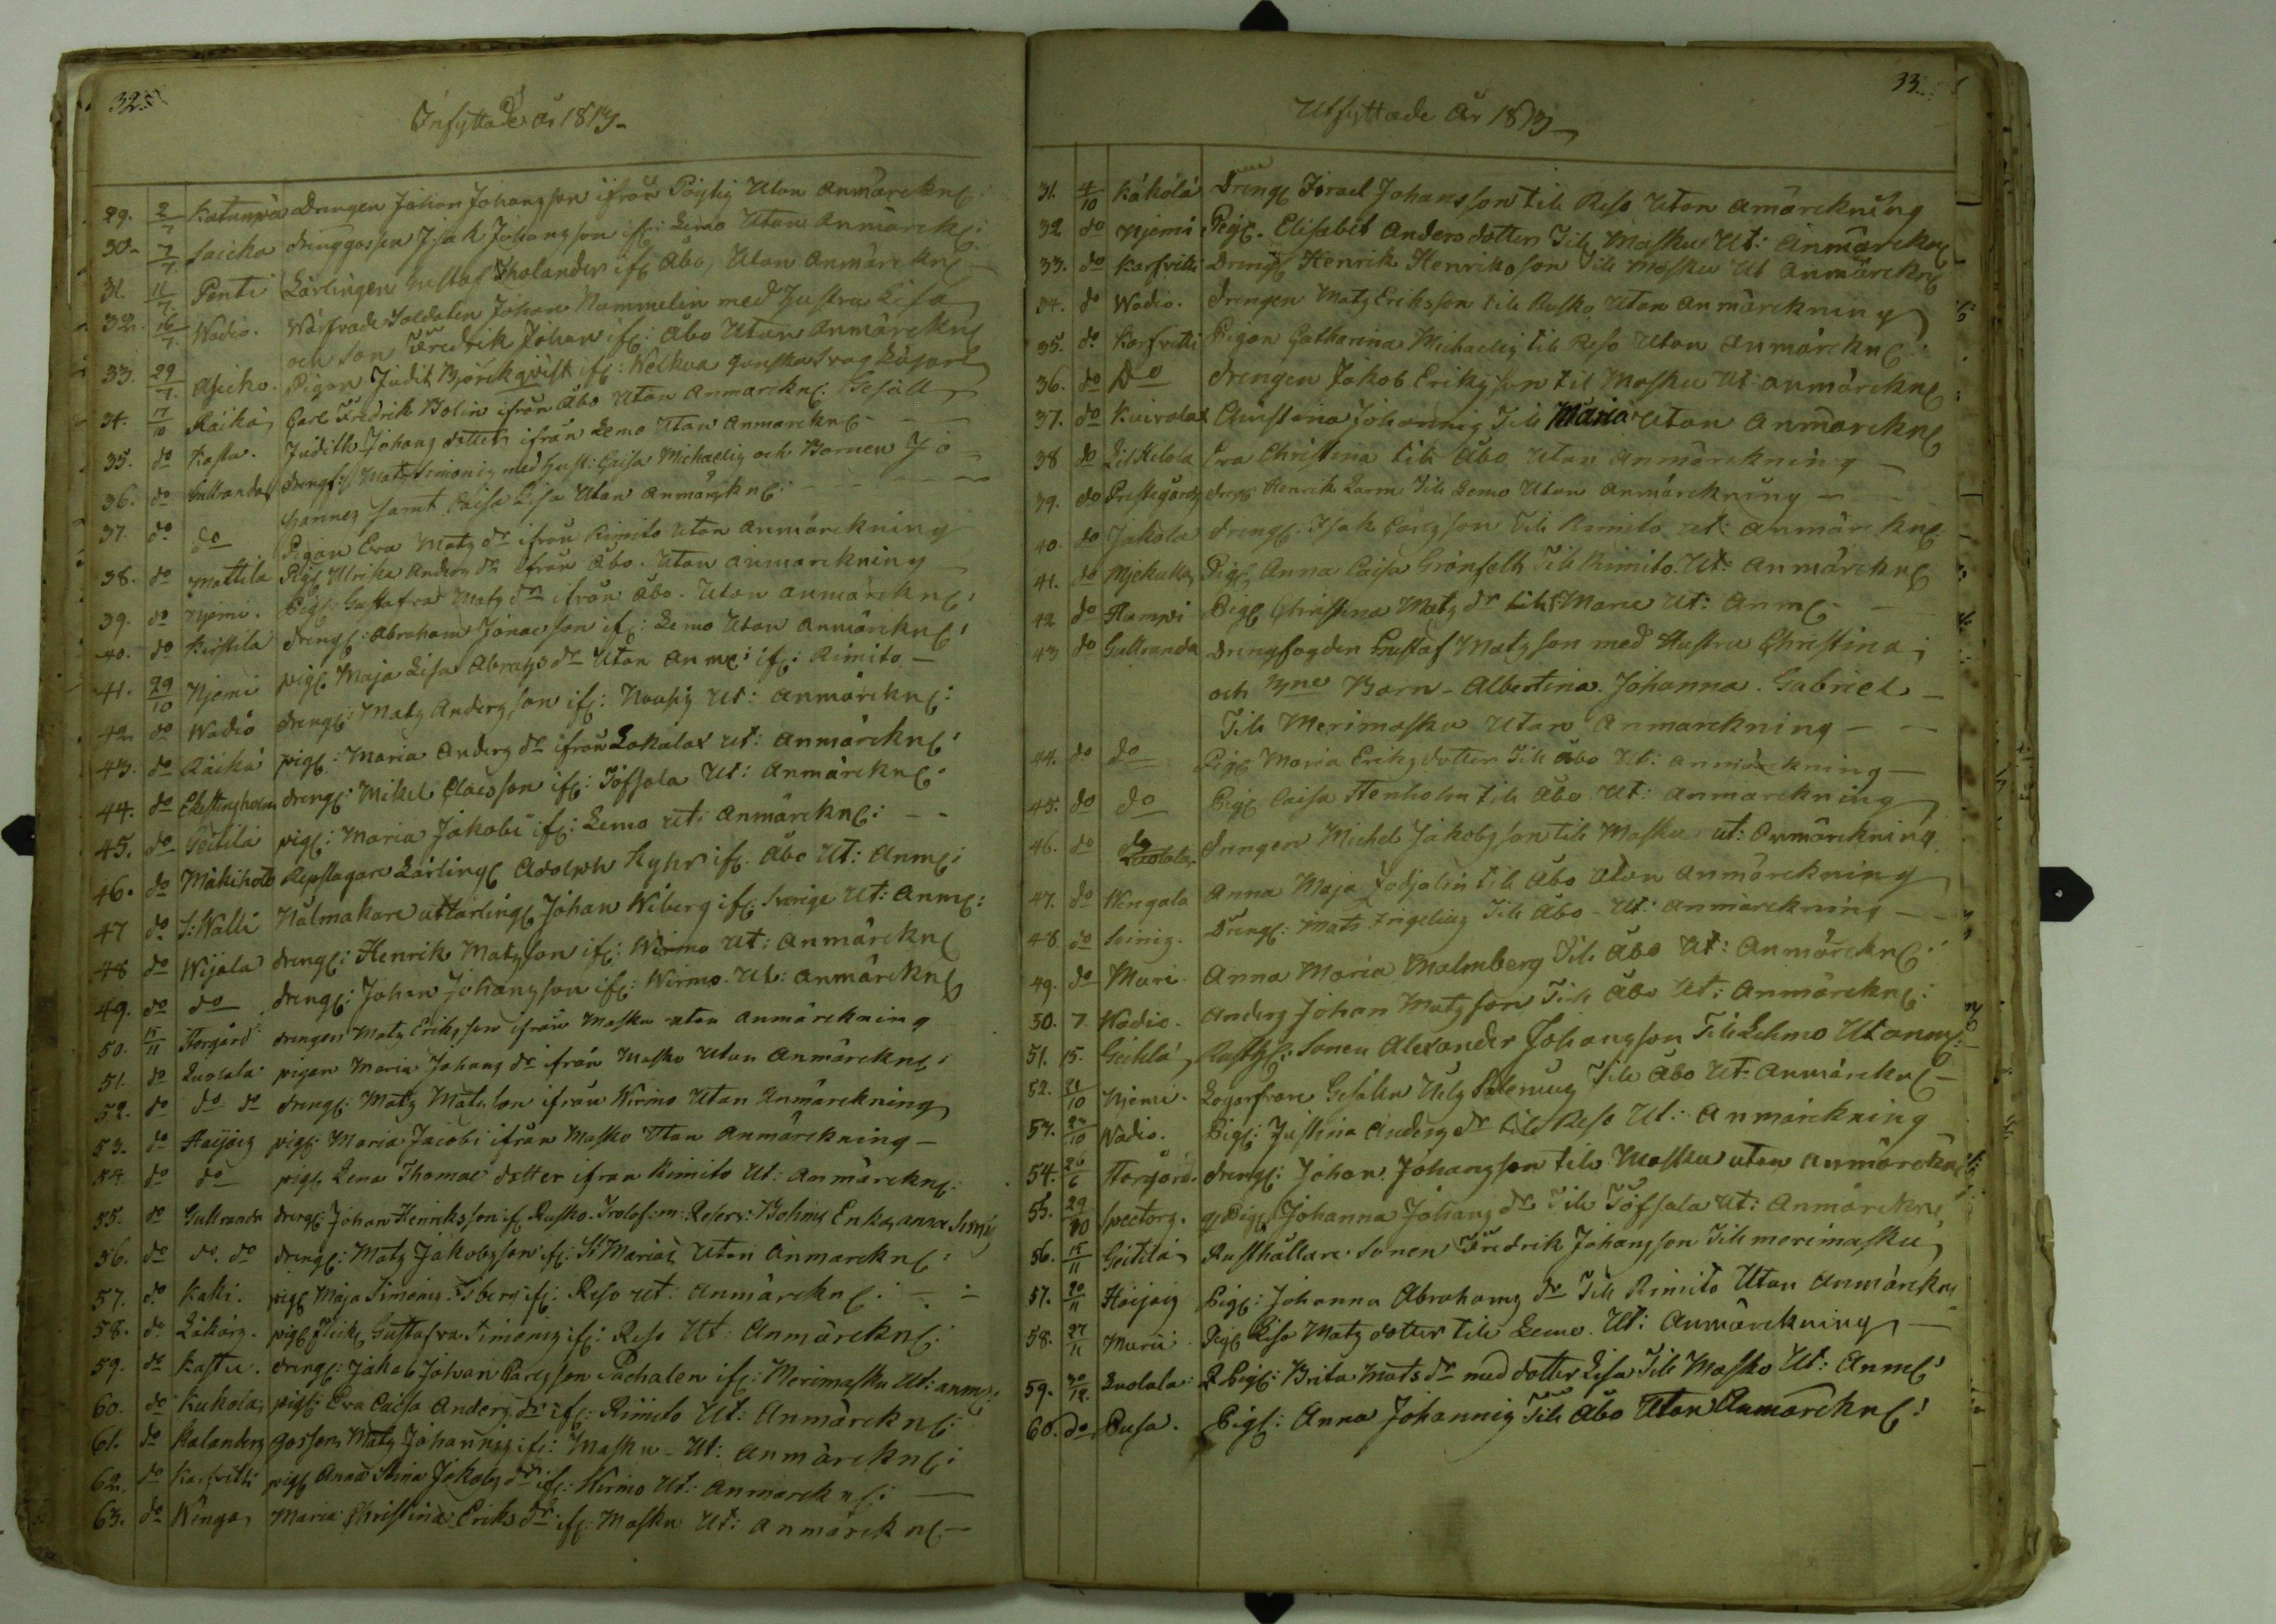 32.
Inflyttade år 1813
29. 2/7 Katunpä Drengen Johan Johansson ifrån Pöytis Utan Anmärckn:
30. 7/7 Saicka drenggossen Isak Johansson ifr: Lemo Utan Anmärck:
31. 11/7 Penti Lärlingen Gustaf Tholander ifr Åbo, Utan Anmärckn
32. 16/7 Wadio. Wärfvade Soldaten Johan Nummelin med Hustru Lisa
och son Fredrik Johan ifr: Åbo Utan Anmärckn
33. 29/7 Pigan Judit Björckqvist ifr: Welkua ganska svag Läsare
34. 17/10 Raikä, Carl Fredrik Bolin ifrån Åbo Utan Anmärckn: Gesäll
35. do Kastu. Judith Johans dotter ifrån Lemo Utan Anmarckn
36. do Gullranda drengl: Matz Simonis med Hust: Caisa Michaelis och Barnen Jo-
hannes samt Caisa Lisa Utan Anmärkn:
37. do do Pigan Eva Matz dr ifrån Rimito Utan Anmärckning
38. do Mattila Pigl Ulrika Anders dr ifrån Åbo. Utan Anmarckning
39. do Njemi. Pigl: Gustafva Matz dr ifrån Åbo. Utan Anmärckn:
40. do Kirstila drengl: Abraham Jonae son ifr: Lemo Utan Anmärckn:
41. 29/10 Njemi pigl: Maja Lisa Abrahs dr Utan Anm: ifr: Rimito
42. do Wadio drengl: Matz Andersson ifr: Nousis Ut: Anmärckn:
43. do Räikä pigl: Maria Anders dr ifrån Lokalax Ut: Anmärckn:
44. do Ekestensholm drengl: Mikel Claesson ifr: Töfsala Ut: Anmärckn:
45. do Geitila pigl: Maria Jakobi ifr: Lemo Ut: Anmärckn:
46. do Mäkihoto Repslagare Lärlingl Adolph Kyhr ifr: Åbo Ut: Anm:
47 do S: Walli Nålmakare utlärlingl Johan Wiberg ifr: Sverige Ut: Anm:
48 do Wijala drengl: Henrik Matzson ifr: Wirmo Ut: Anmärckn
49. do do drengl: Johan Johansson ifr: Wirmo. Ut: Anmärckn
50. 15/11 Horgård drengen Matz Eriksson ifrån Masku utan Anmärckning
51. do Luolala pigan Maria Johans dr ifrån Masko Utan Anmärckn:
52. do do do drengl: Matz Matsson ifrån Wirmo Utan Anmärckning
53. do Haijais pigl: Maria Jacobi ifrån Masko Utan Anmärckning
54 do do pigl Lena Thomae dotter ifrån Rimito Ut: Anmärckn:
55. do Gullranda drengl: Johan Henriksson ifr Rusko.
56. do do. do drengl: Matz Jakobsson ifr: St Mariæ Utan Anmarckn:
57. do Kaki. pigl Maja Simons ifr: Reso Ut: Anmärckn:
58. do Läkärs. pigl flick Gustafva Simonis ifr: Reso Ut: Anmärckn:
59. do Kastu. drengl: Jakob Johan Carlsson Pachalen ifr: Merimasku Ut: Anm:
60. do Kukola, pigl: Eva Caisa Anders dr ifr: Rimito Ut: Anmärckn:
61. do Kalanders gossen Matz Johannis ifr: Masku Ut: Anmärckn:
62. do Karfvitti pigl Anna Stina Jakobs dr ifr: Wirmo Ut: Anmärckn:
63. do Wänga, Maria Christina Eriks dr ifr: Masku Ut: Anmärckn
33.
Utflyttade År 1813
31. 4/10 Käkölä Drengl Israel Johansson till Reso Utan Amärckning
32 do Njemi Pigl. Elisabet Andersdotter Till Masku Ut: Anmärckn
33. do Karfvitti Drengl Henrik Henriksson Till Masku Ut Anmärckn
34. do Wadio. Drengen Matz Eriksson till Rusko Utan Anmärckning
35. do Karfvitti Pigan Catharina Michaelis till Reso Utan Anmärckn:
36. do Do drengen Jakob Eriksson til Masku Ut: Anmärckn
37. do Kuivolax Christina Johannis Till Maria Utan Anmärckn
38 do Lilkilola Eva Christina till Åbo Utan Anmärckning
39. do Prestegårdz drengl: Henrik Larm Till Lemo Utan Anmärckning
40 do Jakola drengl: Isak Carlsson till Rimito ut: Anmärckn
41. do Mjekulla, Pigl, Anna Caisa Grönfelt Till Rimito. Ut: Anmärckn
42 do Hampi Pigl Christina Matz dr till St Marie Ut: Anm
43 do Gullranda Drengfogden Gustaf Matzson med Hustru Christina,
och 3ne Barn Albertina. Johanna. Gabriel
Till Merimasku Utan Anmarckning
44. do do Pigl Maria Eriksdotter Till Åbo Ut: Anmärckning
45. do do Pigl Caisa Stenholm till Åbo Ut: Anmarckning
46. do do Luolala. drengen Michel Jakobsson till Masku ut: Anmärckning
47. do Wengala Anna Maja till Åbo Utan Anmärckning
48 do Soinis. Drengl: Mats Till Åbo Ut: Anmärckning
49. do Muri Anna Maria Malmberg Till Åbo Ut: Anmärckn:
50. 7 Wadio. Anders Johan Matzson Till Åbo Ut: Anmärckn:
51. 15. Geitila, Rusth: Sonen Alexander Johansson Till Lehmo Ut anm:
52. 21/10 Njemi. Gesällen Till Åbo Ut: Anmärckn
53. 23/10 Wadio. Pigl: Justina Anders dr till Reso Ut: Anmärckning
54. 26/6 Horgård. drengl: Johan Johansson till Masku utan Anmärckn
55. 29/10 Spectors. Pigl Johanna Johans dr Till Töfsala Ut: Anmärckn
56. 15/11 Geitilä Rusthållare sonen Fredrik Johansson Till merimasku
57. 20/11 Haijais Pigl: Johanna Abrahams dr Till Rimito Utan Anmärckn
58. 27/11 Murii Pigl Lisa Matz dotter till Lemo. Ut: Anmärckning
59. 30/12. Luolala: Pigl: Brita Mats dr med dotter Lisa Till Masko Ut: Anm:
60. do Pusa. Pigl: Anna Johannis Till Åbo Utan Anmärckn: